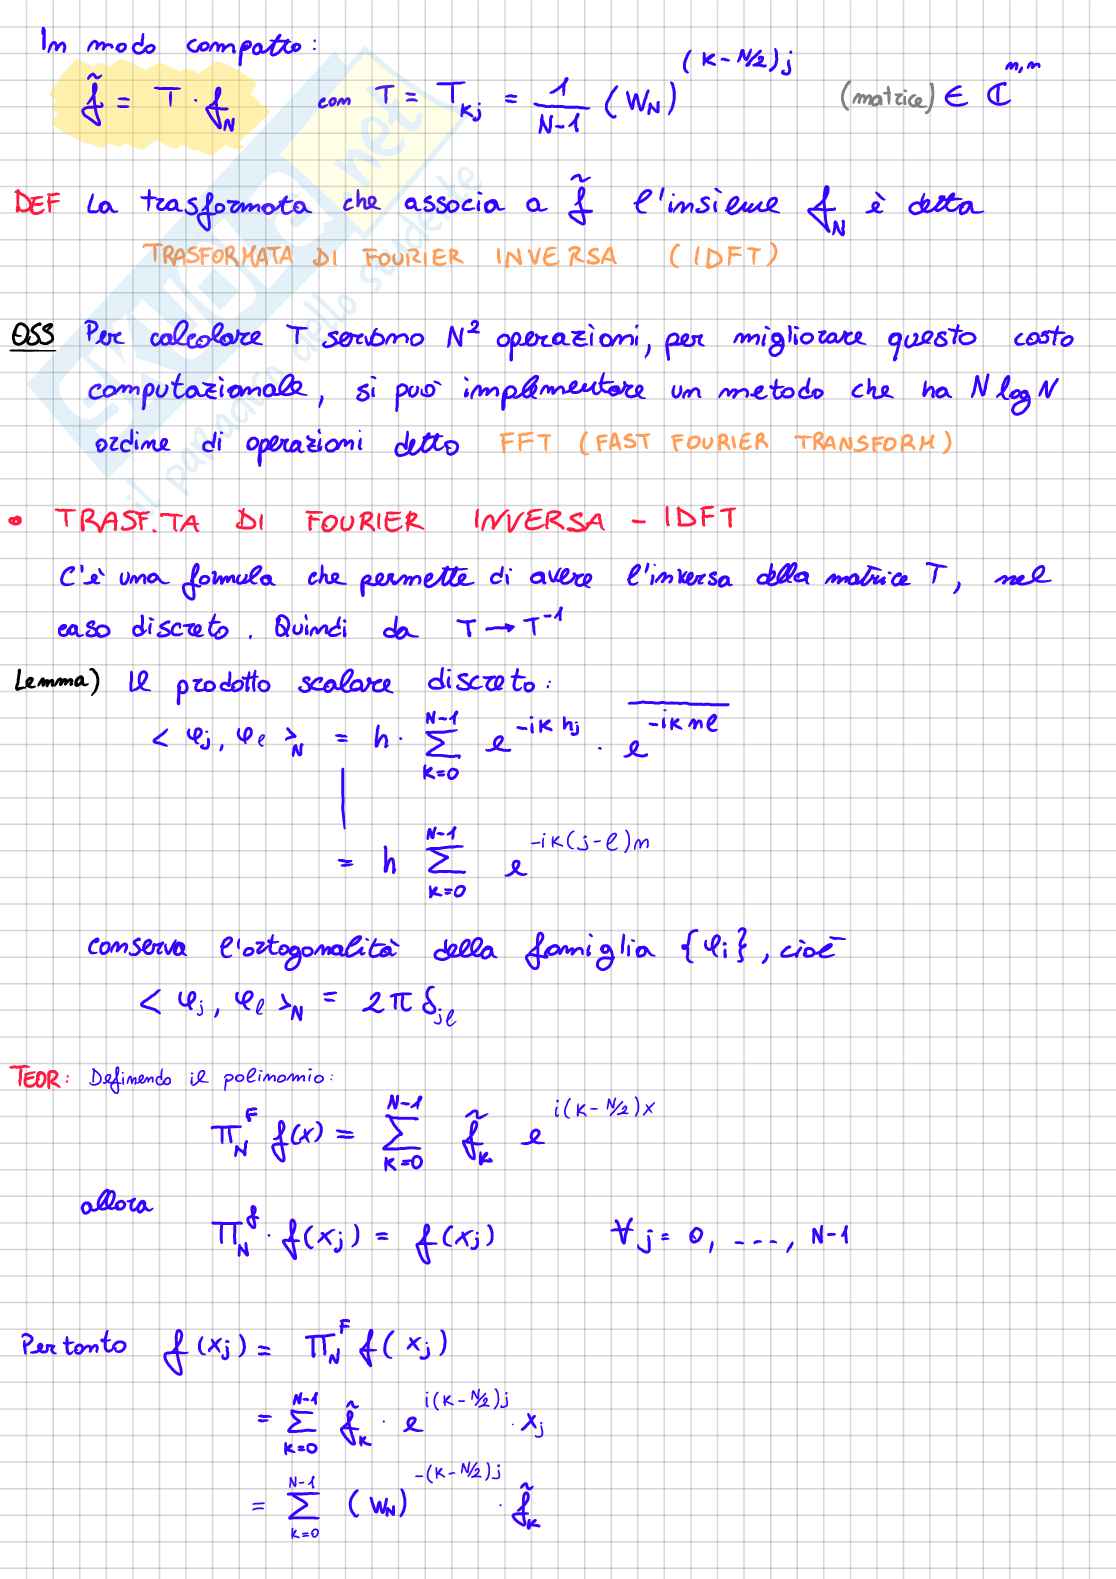 In modo compatto:
f̃ = T · f_N con T = T_kj = 1/(N-1) (W_N)^((k-N/2)j) (matrice) ∈ ℂ^(n,n)
DEF La trasformata che associa a f̃ l'insieme f_N è detta
TRASFORMATA DI FOURIER INVERSA (IDFT)
OSS Per calcolare T servono N² operazioni, per migliorare questo costo
computazionale, si può implementare un metodo che ha N log N
ordine di operazioni detto FFT (FAST FOURIER TRANSFORM)
• TRASF.TA DI FOURIER INVERSA - IDFT
C'è una formula che permette di avere l'inversa della matrice T, nel
caso discreto. Quindi da T → T^-1
Lemma) Il prodotto scalare discreto:
< φ_j, φ_l >_N = h · ∑_{k=0}^{N-1} e^(-ik hj) · \overline{e^(-ik nl)}
= h ∑_{k=0}^{N-1} e^(-ik(j-l)n)
conserva l'ortogonalità della famiglia {φ_i}, cioè
< φ_j, φ_l >_N = 2π δ_jl
TEOR: Definendo il polinomio:
Π_N^F f(x) = ∑_{k=0}^{N-1} f̃_k e^(i(k-N/2)x)
allora
Π_N^f · f(x_j) = f(x_j) ∀ j = 0, ----, N-1
Pertanto f(x_j) = Π_N^F f(x_j)
= ∑_{k=0}^{N-1} f̃_k · e^(i(k-N/2)j) · x_j
= ∑_{k=0}^{N-1} (W_N)^(-(k-N/2)j) · f̃_k